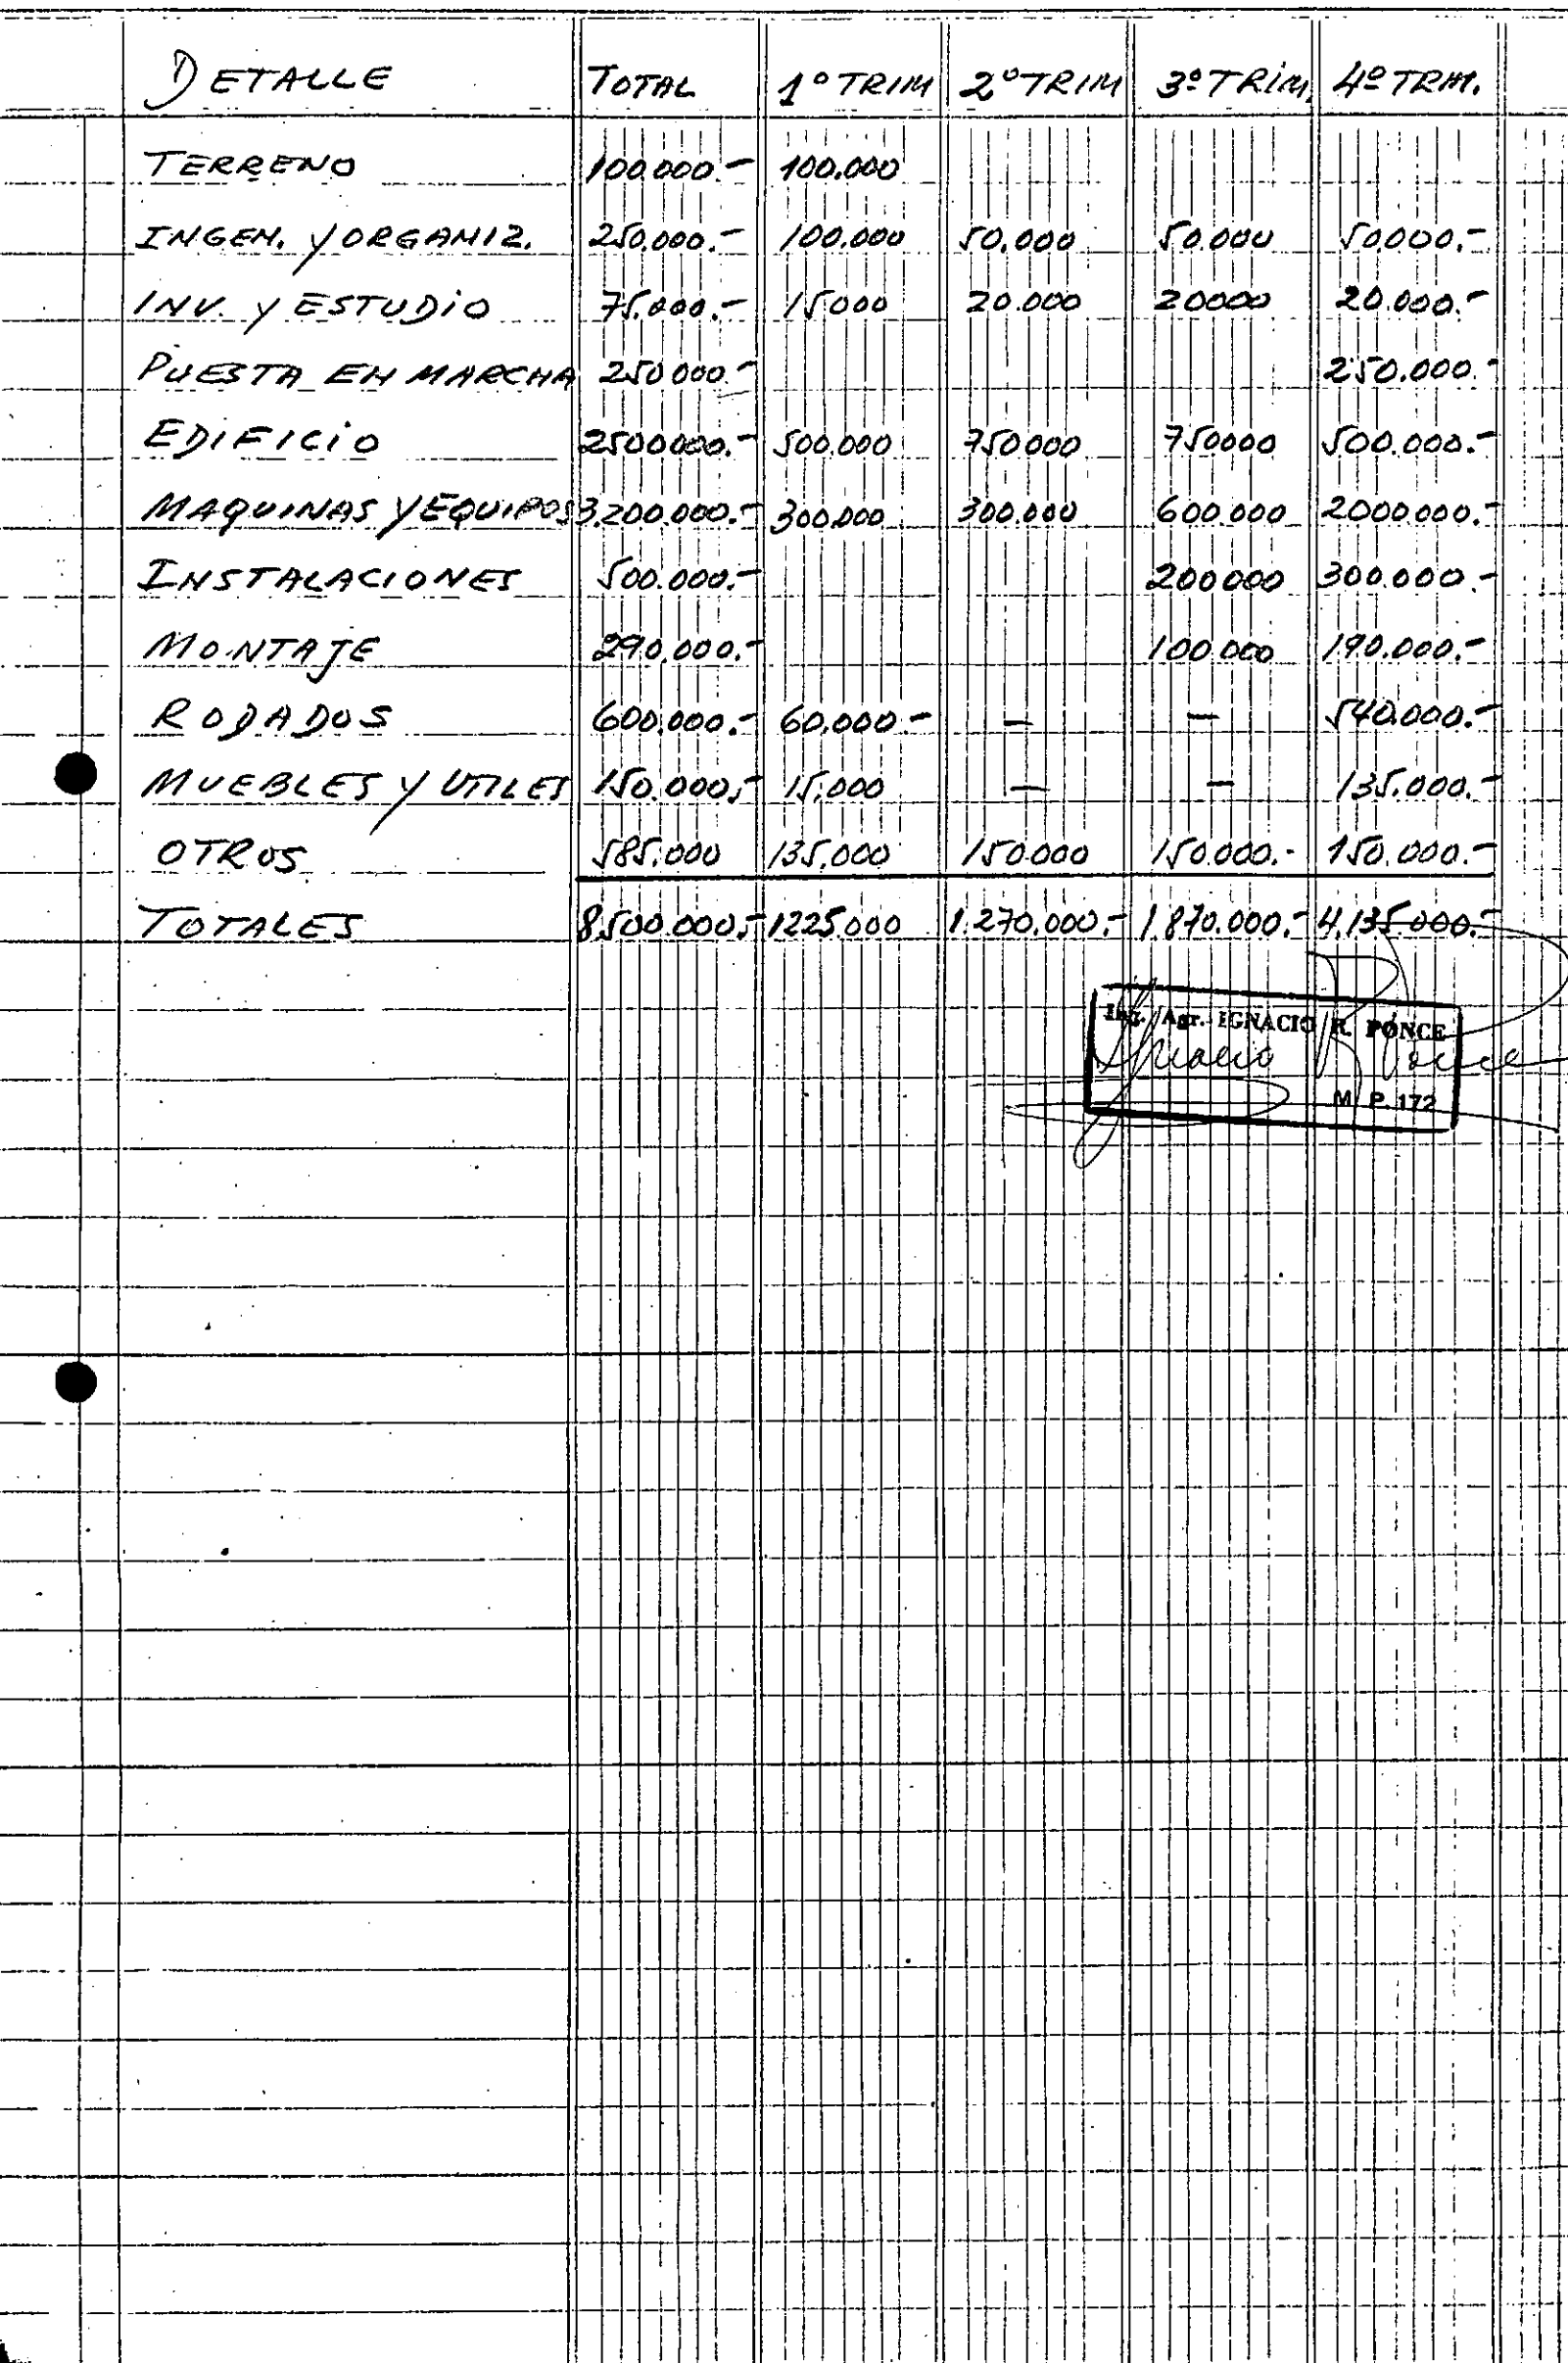 DETALLE TOTAL 1º TRIM 2º TRIM 3º TRIM. 4º TRIM.
TERRENO 100.000.- 100.000
INGEN. Y ORGANIZ. 250.000.- 100.000 50.000 50.000 50.000.-
INV. Y ESTUDIO 75.000.- 15000 20.000 20000 20.000.-
PUESTA EN MARCHA 250000.- 250.000.-
EDIFICIO 2500000.- 500.000 750000 750000 500.000.-
MAQUINAS Y EQUIPOS 3.200.000.- 300.000 300.000 600.000 2000000.-
INSTALACIONES 500.000.- 200000 300.000.-
MONTAJE 290.000.- 100.000 190.000.-
RODADOS 600.000.- 60.000- — — 540.000.-
MUEBLES Y UTILES 150.000.- 15.000 — — 135.000.-
OTROS 585.000 135.000 150.000 150.000.- 150.000.-
TOTALES 8.500.000.- 1225.000 1.270.000.- 1.870.000.- 4.135.000.-
Ing. Agr. IGNACIO R. PONCE
Ignacio R Ponce
M. P. 172